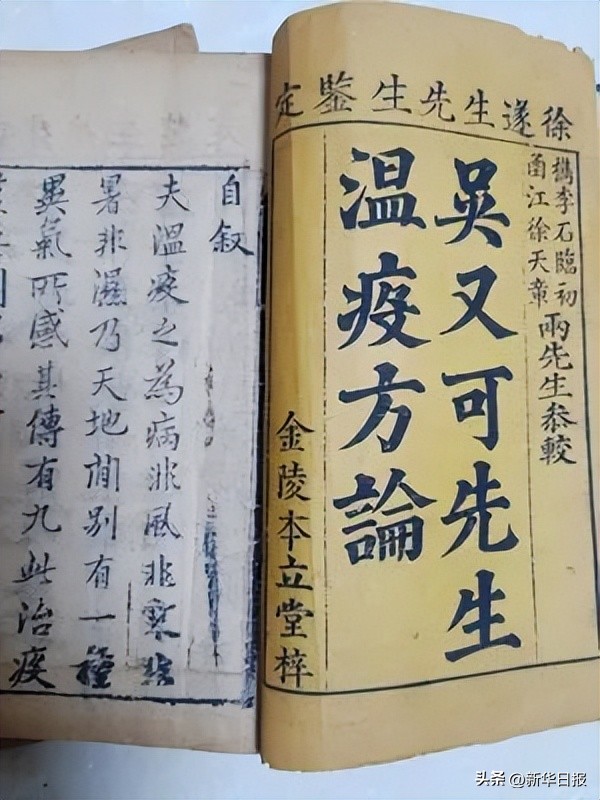 徐遂生先生鑒定
檇李石臨初
甬江徐天章
兩先生叅較
吳又可先生
温疫方論
金陵本立堂梓
自叙
夫温疫之為病非風非寒非
暑非濕乃天地間别有一種
異氣所感其傳有九此治疫
头条 @新华日报